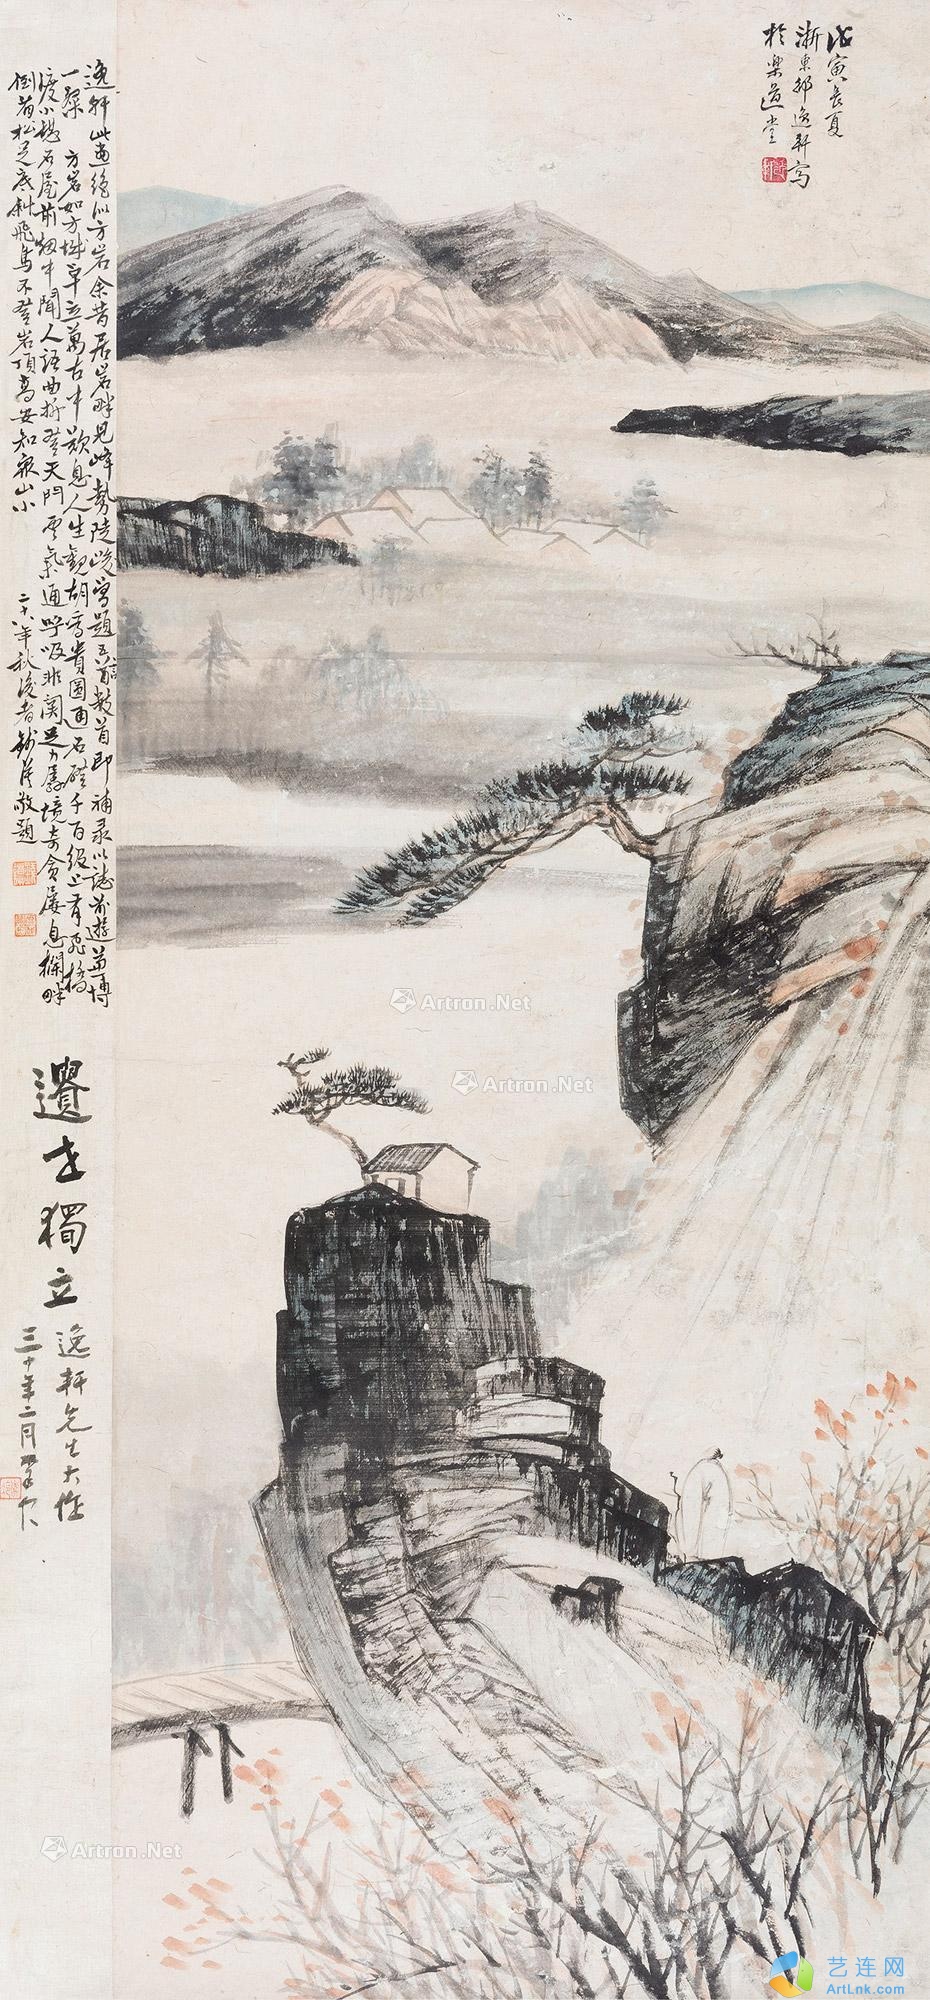 戊寅長夏
浙東邵逸軒寫
於樂道堂
逸軒此畫絶似方岩余昔居岩畔見峰勢陡峻曾題五言数首即補录以誌前遊並博
一粲 方岩如方城卓立萬古中歎息人生観胡爲貴圓通石磴千百级上有飛橋
渡小憩石屋前烟中聞人語曲折登天門雲氣通呼吸非関足力孱境奇貪屡息欄畔
倒看松足底斜飛鳥不登岩頂高安知衆山小
二十八年秋後者
敬題
遺世獨立
逸軒先生大作
三十年二月
Artron.Net
Artron.Net
Artron.Net
艺连网
ArtLnk.com